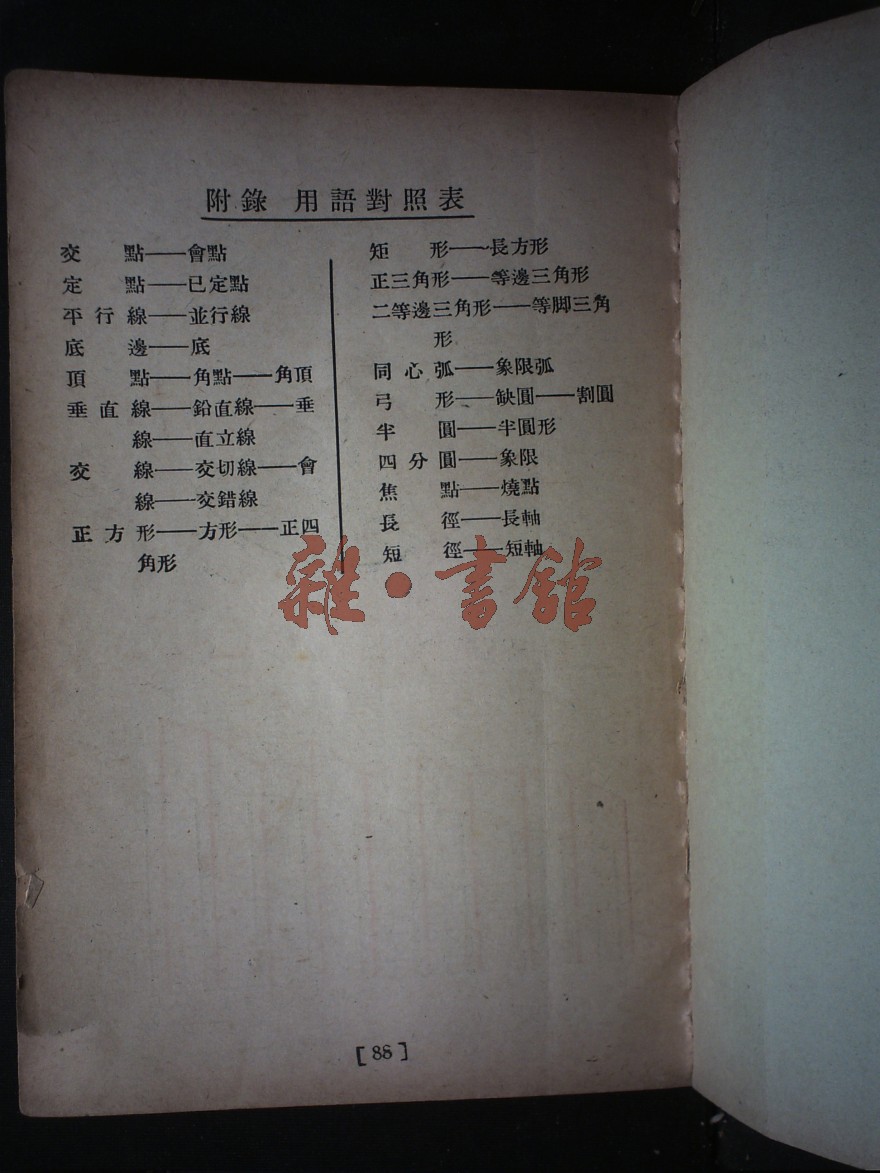 附錄 用語對照表
交 點——會點
定 點——已定點
平行線——並行線
底 邊——底
頂 點——角點——角頂
垂直線——鉛直線——垂
線——直立線
交 線——交切線——會
線——交錯線
正方形——方形——正四
角形
矩 形——長方形
正三角形——等邊三角形
二等邊三角形——等脚三角
形
同心弧——象限弧
弓 形——缺圓——割圓
半 圓——半圓形
四分圓——象限
焦 點——燒點
長 徑——長軸
短 徑——短軸
雜·書館
[88]